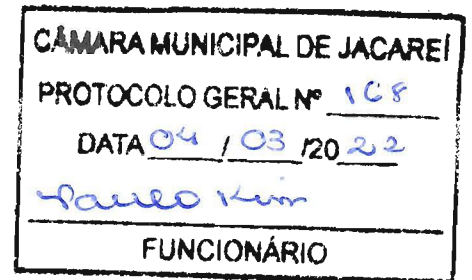 CÂMARA MUNICIPAL DE JACAREÍ
PROTOCOLO GERAL Nº 168
DATA 04 / 03 /20 22
Paulo Kim
FUNCIONÁRIO